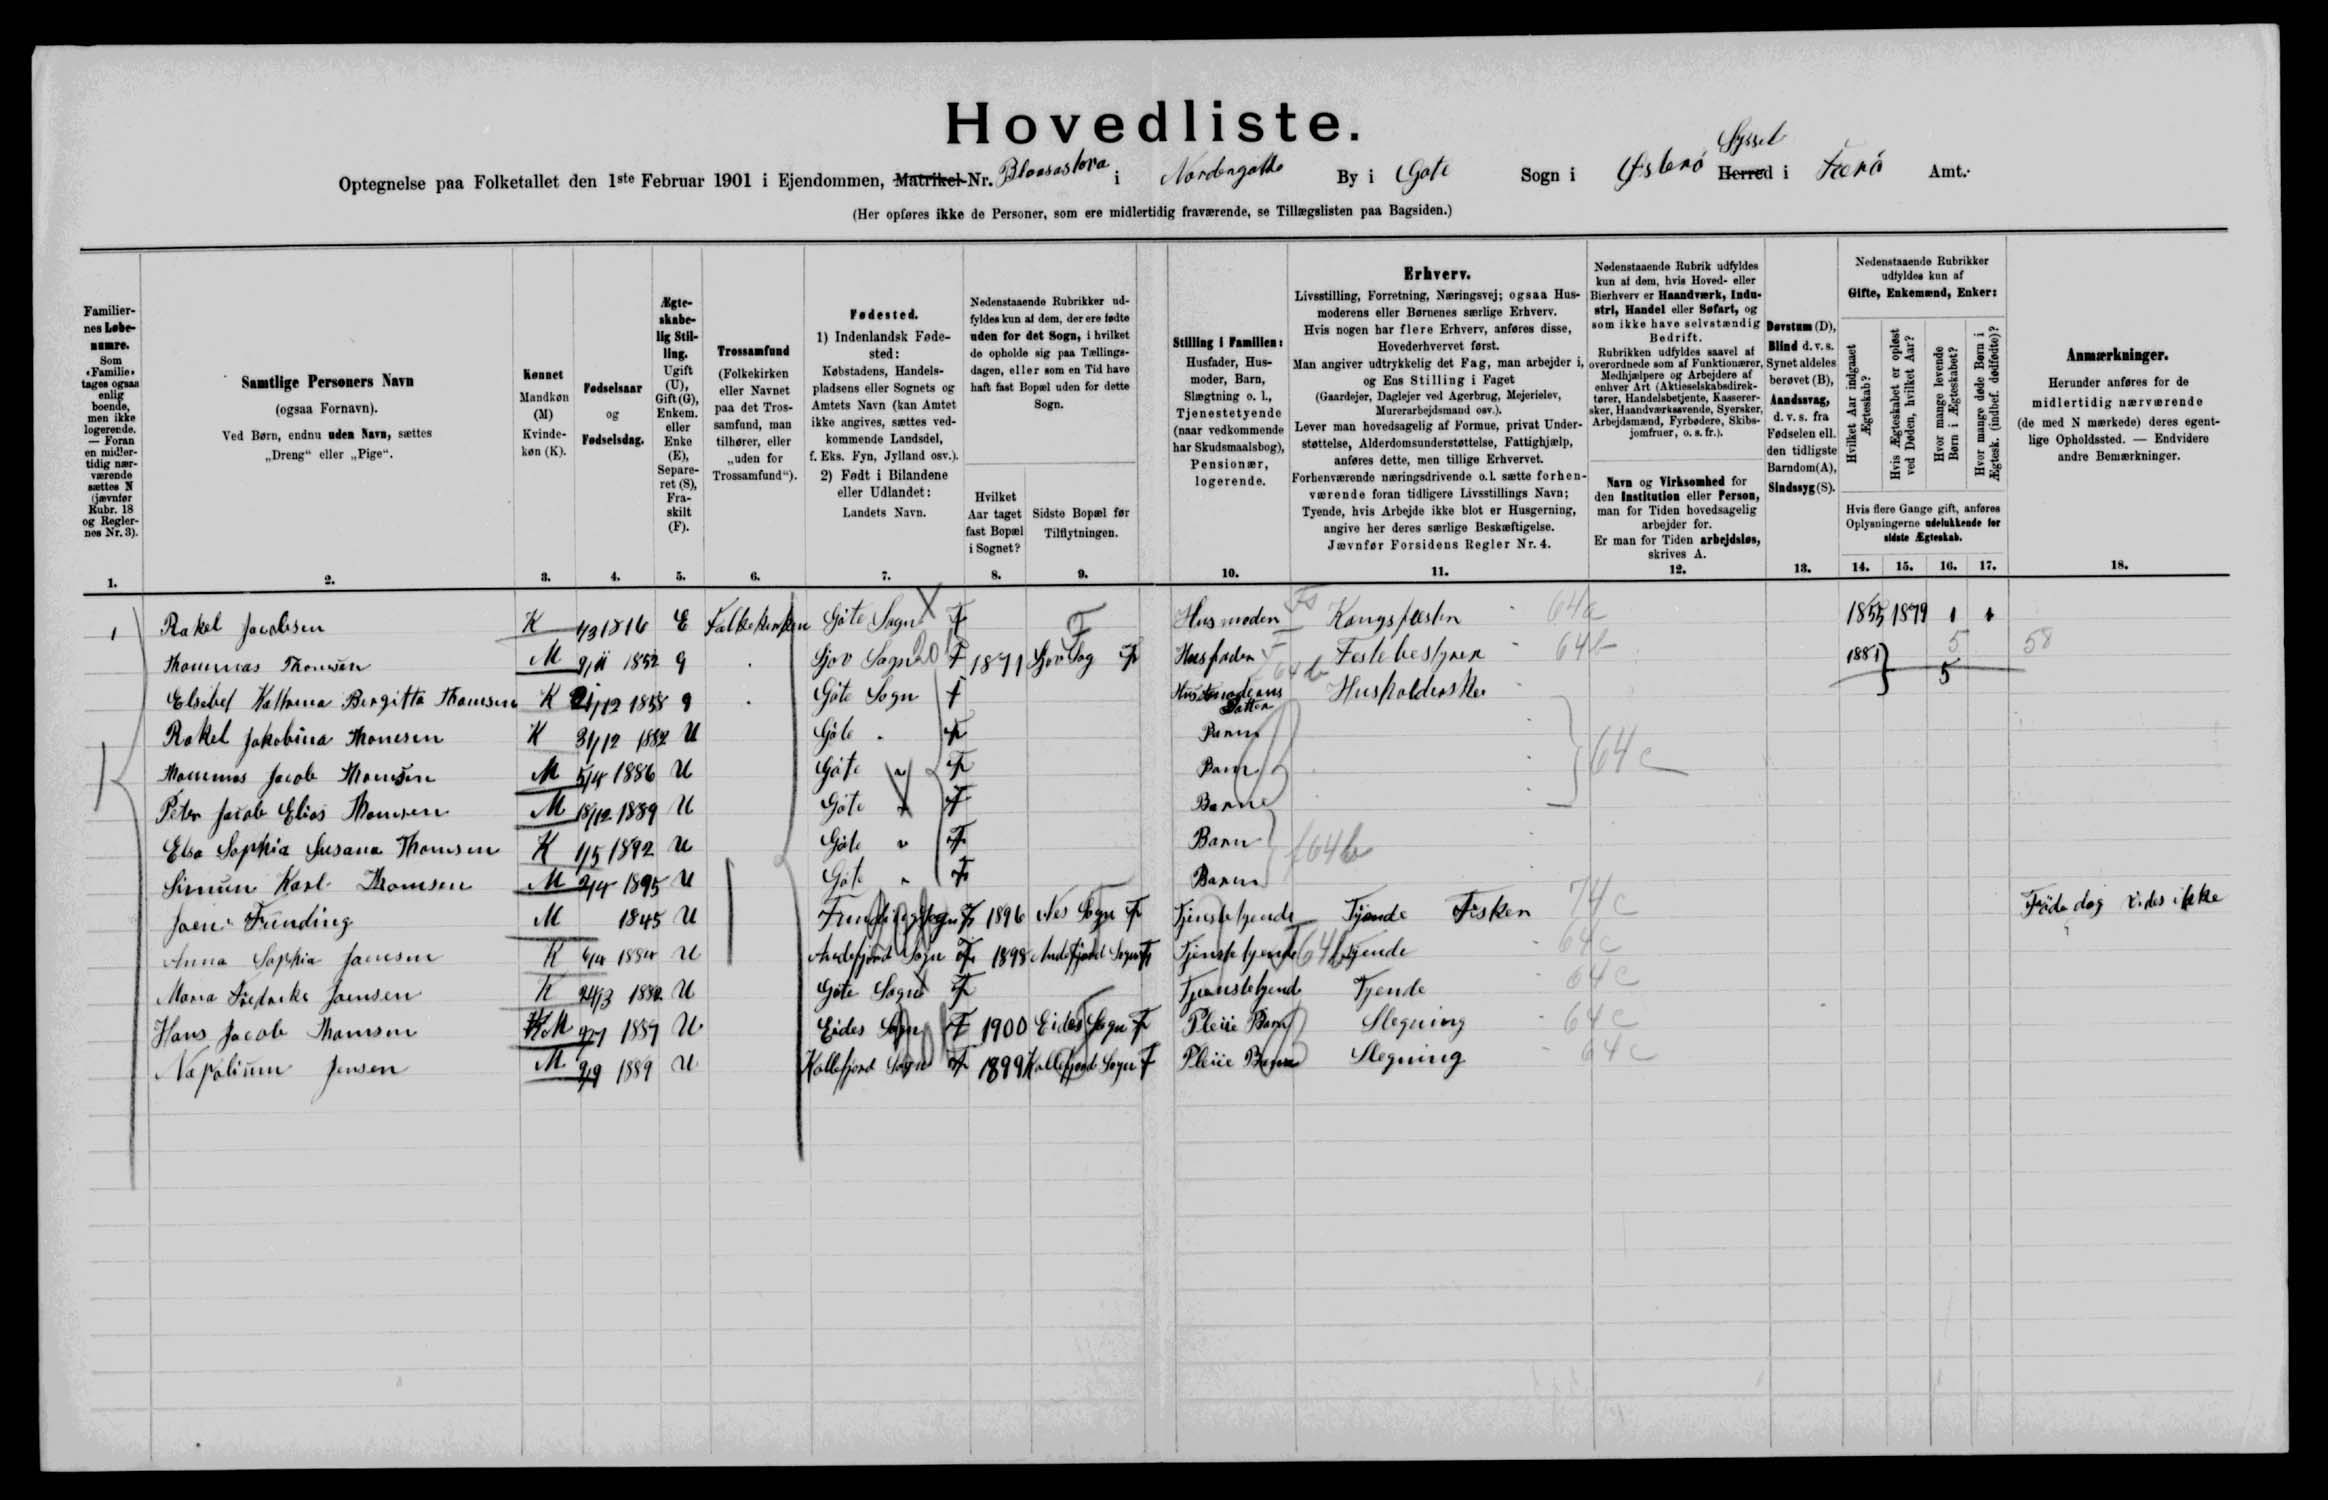 Hovedliste.
Syssel
Optegnelse paa Folketallet den 1ste Februar 1901 i Ejendommen, Matrikel-Nr. Blaasastova i Nordragøtte By i Gøte Sogn i Østerø Herred i Færø Amt.
(Her opføres ikke de Personer, som ere midlertidig fraværende, se Tillægslisten paa Bagsiden.)
Familiernes Løbenumre. Som «Familie» tages ogsaa enlig boende, men ikke logerende. — Foran en midlertidig nærværende sættes N (jævnfør Rubr. 18 og Reglernes Nr. 3).
Samtlige Personers Navn (ogsaa Fornavn). Ved Børn, endnu uden Navn, sættes „Dreng“ eller „Pige“.
Kønnet Mandkøn (M) Kvindekøn (K).
Fødselsaar og Fødselsdag.
Ægteskabelig Stilling. Ugift (U), Gift (G), Enkem. eller Enke (E), Separeret (S), Fraskilt (F).
Trossamfund (Folkekirken eller Navnet paa det Trossamfund, man tilhører, eller „uden for Trossamfund“).
Fødested. 1) Indenlandsk Fødested: Købstadens, Handelspladsens eller Sognets og Amtets Navn (kan Amtet ikke angives, sættes vedkommende Landsdel, f. Eks. Fyn, Jylland osv.). 2) Født i Bilandene eller Udlandet: Landets Navn.
Nedenstaaende Rubrikker udfyldes kun af dem, der ere fødte uden for det Sogn, i hvilket de opholde sig paa Tællingsdagen, eller som en Tid have haft fast Bopæl uden for dette Sogn.
Hvilket Aar taget fast Bopæl i Sognet?
Sidste Bopæl før Tilflytningen.
Stilling i Familien: Husfader, Husmoder, Barn, Slægtning o. l., Tjenestetyende (naar vedkommende har Skudsmaalsbog), Pensionær, logerende.
Erhverv.
Livsstilling, Forretning, Næringsvej; ogsaa Husmoderens eller Børnenes særlige Erhverv.
Hvis nogen har flere Erhverv, anføres disse, Hovederhvervet først.
Man angiver udtrykkelig det Fag, man arbejder i, og Ens Stilling i Faget (Gaardejer, Daglejer ved Agerbrug, Mejerielev, Murerarbejdsmand osv.).
Lever man hovedsagelig af Formue, privat Understøttelse, Alderdomsunderstøttelse, Fattighjælp, anføres dette, men tillige Erhvervet.
Forhenværende næringsdrivende o. l. sætte forhenværende foran tidligere Livsstillings Navn; Tyende, hvis Arbejde ikke blot er Husgerning, angive her deres særlige Beskæftigelse.
Jævnfør Forsidens Regler Nr. 4.
Nedenstaaende Rubrik udfyldes kun af dem, hvis Hoved- eller Bierhverv er Haandværk, Industri, Handel eller Søfart, og som ikke have selvstændig Bedrift.
Rubrikken udfyldes saavel af overordnede som af Funktionærer, Medhjælpere og Arbejdere af enhver Art (Aktieselskabsdirektører, Handelsbetjente, Kasserersker, Haandværkssvende, Syersker, Arbejdsmænd, Fyrbødere, Skibsjomfruer, o. s. fr.).
Navn og Virksomhed for den Institution eller Person, man for Tiden hovedsagelig arbejder for.
Er man for Tiden arbejdsløs, skrives A.
Døvstum (D), Blind d. v. s. Synet aldeles berøvet (B), Aandssvag, d. v. s. fra Fødselen ell. den tidligste Barndom (A), Sindssyg (S).
Nedenstaaende Rubrikker udfyldes kun af Gifte, Enkemænd, Enker:
Hvilket Aar indgaaet Ægteskab?
Hvis Ægteskabet er opløst ved Døden, hvilket Aar?
Hvor mange levende Børn i Ægteskabet?
Hvor mange døde Børn i Ægtesk. (indbef. dødfødte)?
Hvis flere Gange gift, anføres Oplysningerne udelukkende for sidste Ægteskab.
Anmærkninger. Herunder anføres for de midlertidig nærværende (de med N mærkede) deres egentlige Opholdssted. — Endvidere andre Bemærkninger.
1. 2. 3. 4. 5. 6. 7. 8. 9. 10. 11. 12. 13. 14. 15. 16. 17. 18.
1 Rakel Jacobsen K 1/3 1816 E Falkekirken Gøte Sogn F Husmoder Kongsfæster 64a 1855 1879 1 1
Thommas Thomsen M 1852 g Sjov Sogn F 1871 Sjov Sog F Husfader Festebestyrer 64b 1881 5 58
Elsebet Kathrina Birgitta Thomsen K 21/12 1858 g Gøte Sogn F Husmoderens Datter Husholderske 5
Rakel Jakobina Thomsen K 31/12 1882 U Gøte F Barn
Thommas Jacob Thomsen M 5/4 1886 U Gøte " F Barn 64c
Peter Jacob Elias Thomsen M 18/12 1889 U Gøte " F Barn
Elsa Sophia Susana Thomsen K 1/5 1892 U Gøte " F Barn 64b
Simun Karl Thomsen M 2/4 1895 U Gøte " F Barn
Joen Funding M 1845 U Funding Sogn F 1896 Nes Sogn F Tjenstetyende Tjende Fisker 74c Føde dag vides ikke
Anna Sophia Joensen K 1884 U Andefjord Sogn F 1898 Andefjord Sogn F Tjenstetyende Tjende 64c
Maria Fredrikke Joensen K 24/3 1882 U Gøte Sogn F Tjenstetyend Tjende 64c
Hans Jacob Thomsen M 1887 U Eides Sogn F 1900 Eides Sogn F Pleiie Barn Slegning 64c
Napolium Jensen M 9/9 1889 U Kollefjord Sogn F 1899 Kollefjord Sogn F Pleiie Barn Slegning 64c